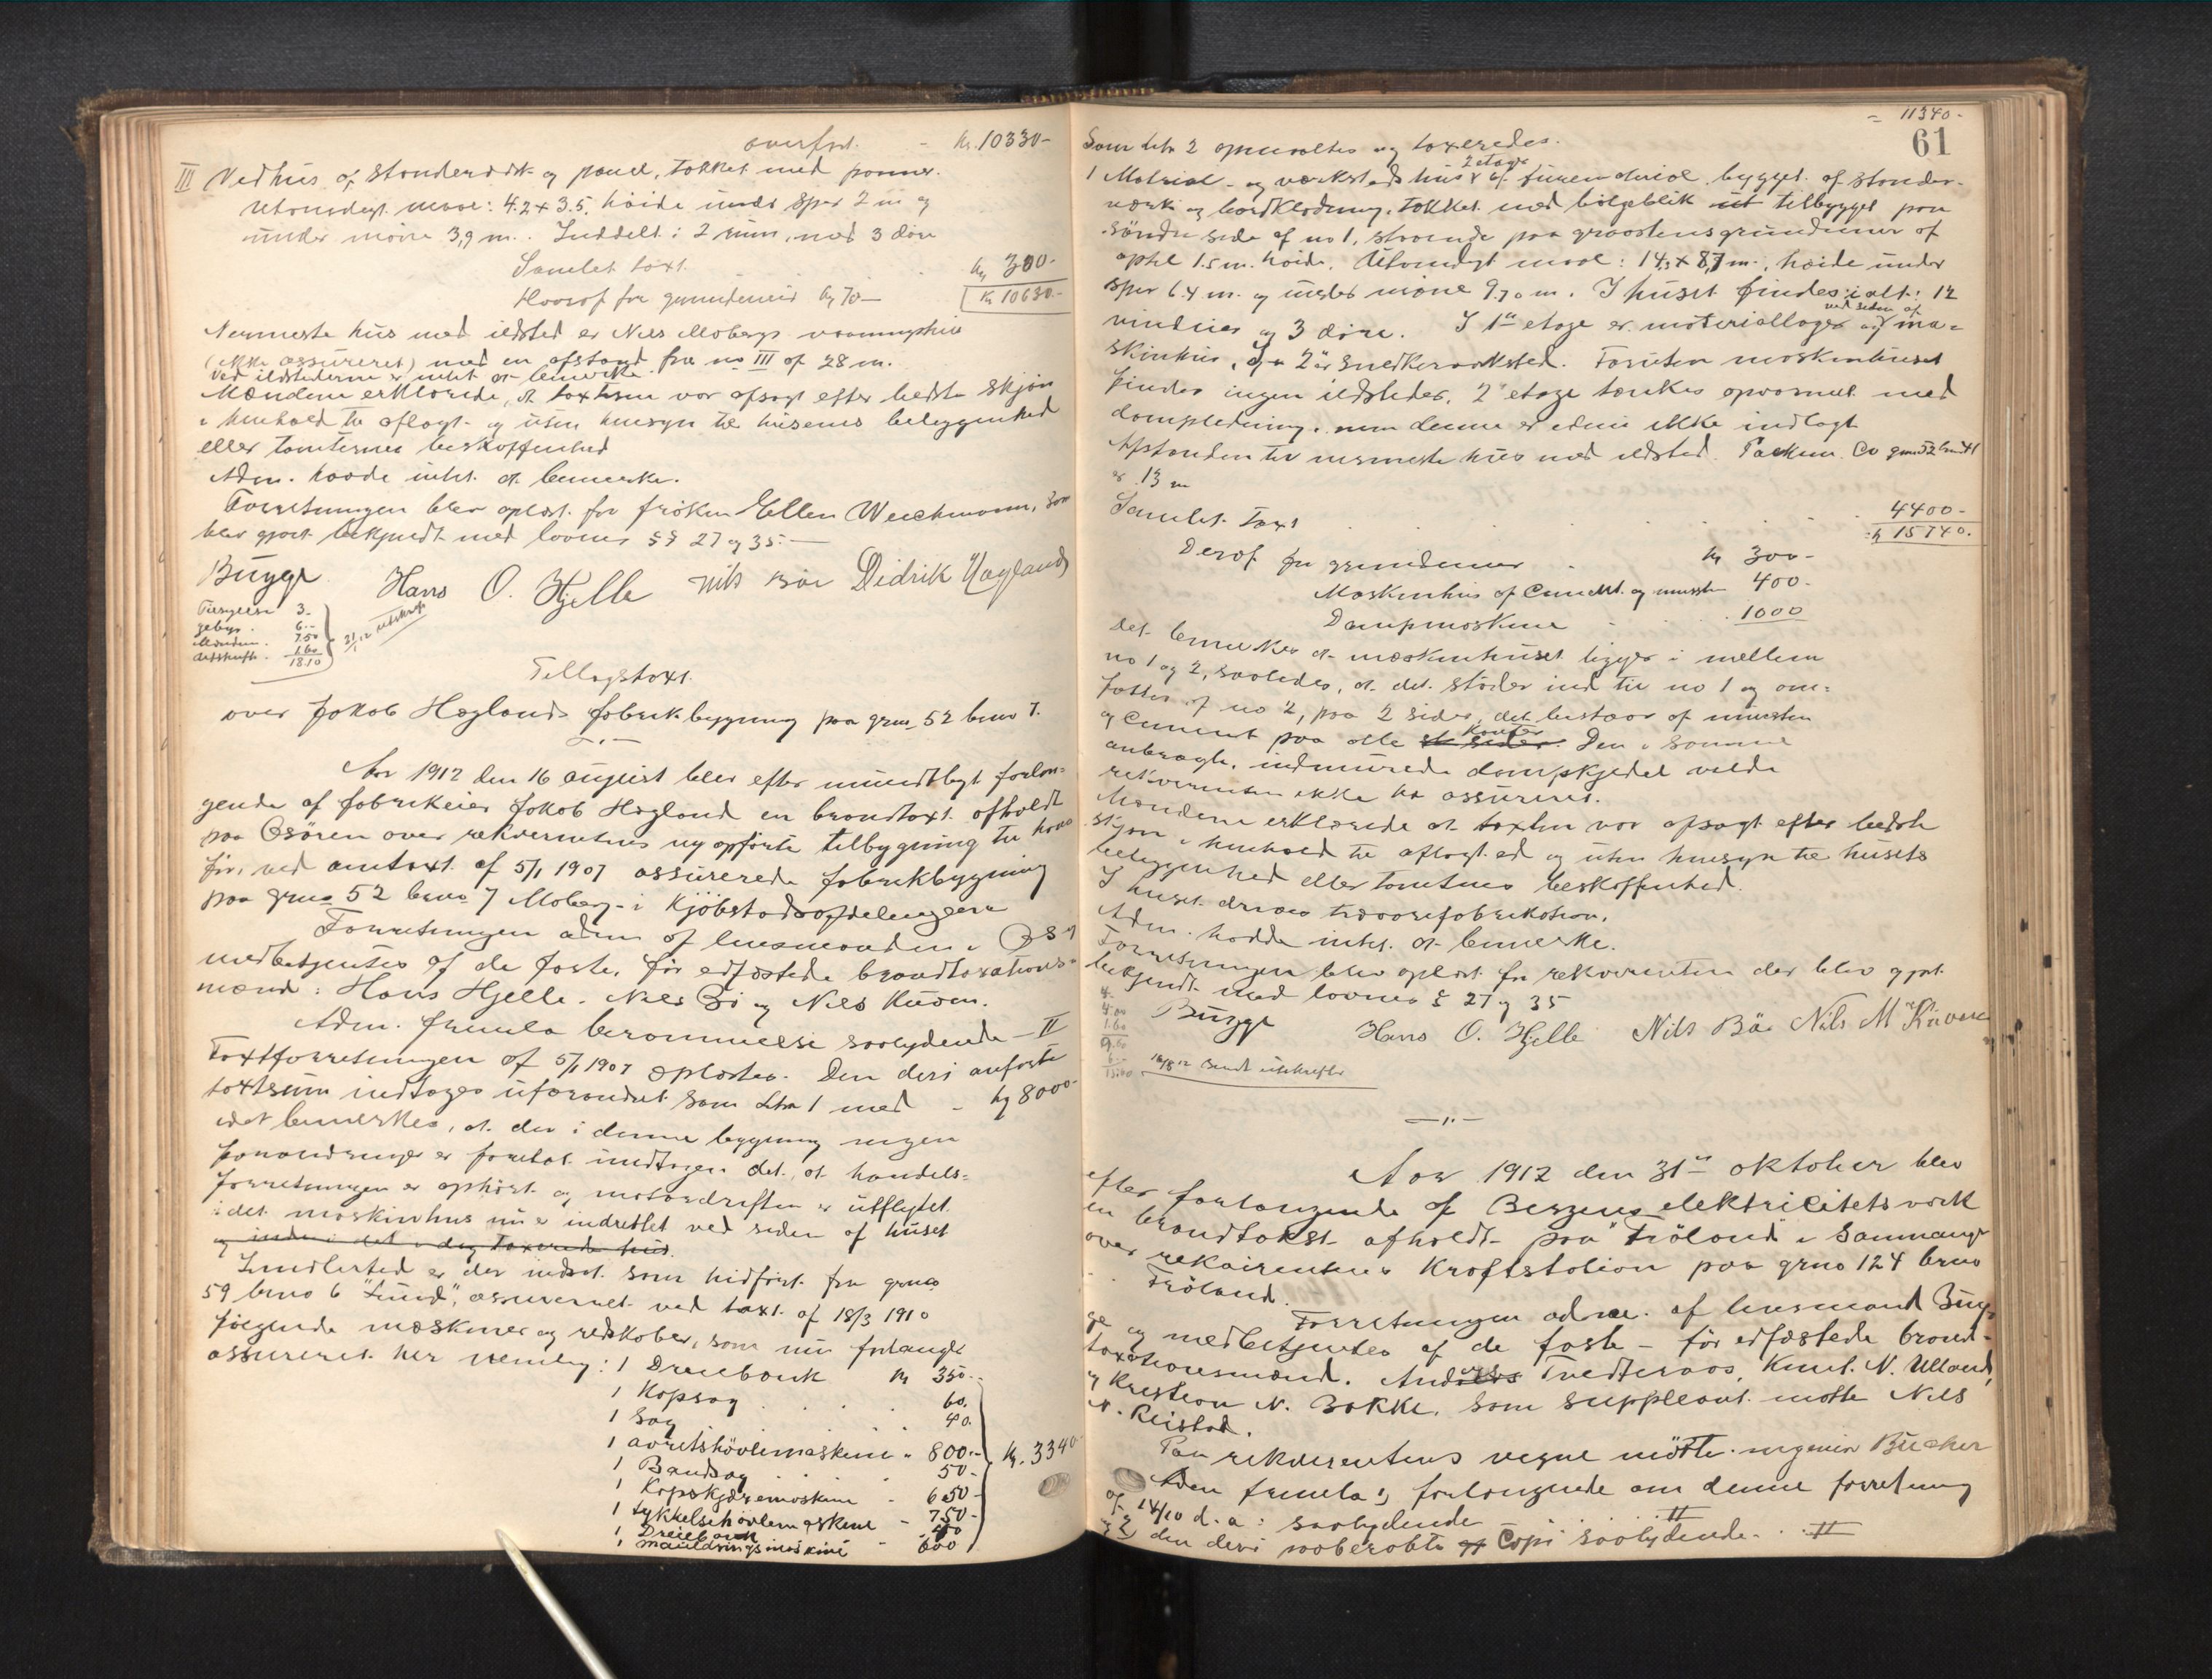 overført. - Kr. 10330-
III Vedhus af stenderverk og panel, tækket med panner.
Utvendigt maal: 4.2 x 3.5, høide under spær 2 m og
under møne 3,9 m. Inddelt i 2 rum, med 3 døre
Samlet taxt. Kr 300-
Hvoraf for grundmur kr 70- Kr 10630-
Nermeste hus med ildsted er Nils Mobergs vaaningshus
(ikke assureret) med en afstand fra no III af 28 m.
Ved ildstederne er intet at bemerke.
Mændene erklærede, at taxtsum var afsagt efter bedste skjøn
i henhold til aflagt og uten hensyn til husenes beliggenhed
eller tomternes beskaffenhed
Adm. havde intet at bemerke.
Forretningen blev oplæst for frøken Ellen Weichmann, som
blev gjort bekjendt med lovens §§ 27 og 35.-
Bugge Hans O. Hjelle Nils Bøe Didrik Hagland
Tilsyelse 3.-
gebyr. 6.-
Mændene. 7.50
Utskrift. 1.60
18.10
31/12 utskrift
Tillægstaxt.
over Jakob Haglands fabrikbygning paa grno 52 brno 7.
Aar 1912 den 16 august blev efter mundtligt forlan-
gende af fabrikeier Jakob Hagland en brandtaxt afholdt
paa Osøren over rekvirentens nyopførte tilbygning til hans
før, ved amtaxt af 5/1 1907 assurerede fabrikbygning
paa grno 52 brno 7 Moberg i Kjøbstadsafdelingen
Forretningen adm. af lensmanden i Os og
medbetjentes af de faste, før edfæstede brandtaxations-
mænd: Hans Hjelle. Nils Bø og Nils Kuven.
Adm. fremla berammelse saalydende - II
Taxtforretningen af 5/1 1907 oplæstes. Den deri anførte
taxtsum indtages uforandret som Litra 1 med - kr 8000-
idet bemerkes, at der i denne bygning ingen
forandringer er foretat undtagen det, at handels-
forretningen er ophørt og motordriften er utflyttet
i det maskinhus nu er indrettet ved siden af huset
Imidlertid er der indsat som hidført fra grno
59 brno 6 "Lund", assurernet ved taxt af 18/3 1910
følgende maskiner og redskaber, som nu forlanges
assureret her nemlig: 1 Dreiebænk Kr 350.-
1 Kapsag 60.
1 Sag 40.
1 avretshøvlemaskine - 800.-
1 Bandsag 50.-
1 Kopskjæremaskine - 650-
1 tykkelsehøvlemaskine - 750-
1 Dreiebænk 40
1 mauldringsmaskine - 600
Kr. 3340
= 11340.-
61
Som litr 2 opmaaltes og taxeredes.
1 Matrial- og verkstedshus 2 etage af furumaterial bygget af stender-
verk og bordklædning. Tækket med bølgeblik tilbygget paa
søndre side af no 1, staaende paa graastensgrundmur af
optil 1.5 m. høide. Utvendigt maal: 14,3 x 8,7 m., høide under
spær 6.4 m. og under møne 9.70 m. I huset findes ialt: 12
vinduer og 3 døre. I 1ste etage er materiallager ved siden af ma-
skinhus, og i 2en snedkerverksted. Foruten maskinhuset
findes ingen ildsteder. 2 etage tænkes opvarmet med
dampledning, men denne er ennu ikke indlagt
Afstanden til nermeste hus med ildsted.
er 13 m
Samlet Taxt 4400-
Kr 15740.
Deraf for grundmur Kr 300-
Maskinhus af Cement og mursten 400-
Dampmaskine 1000
Det bemerkes at maskinhuset ligger i mellem
no 1 og 2, saaledes, at det støder ind til no 1 og om-
fattes af no 2, paa 2 sider, det bestaar af mursten
og Cement paa alle kanter. Den i samme
anbragte, indmurede dampkjedel vilde
rekvirenten ikke ha assureret.
Mændene erklærede at taxten var afsagt efter bedste
skjøn i henhold til aflagt ed og uten hensyn til husets
beliggenhed eller tomtens beskaffenhed.
I huset drives trævarefabrikation.
Adm. hadde intet at bemerke.
Forretningen blev oplæst for rekvirenten der blev gjort
bekjendt med lovens § 27 og 35
Bugge Hans O. Hjelle Nils Bø Nils M Kuven
16/8 12 sendt utskrifter
Aar 1912 den 31te oktober blev
efter forlangende af Bergens elektricitetsverk
en brandtakst afholdt paa "Frøland" i Samnanger
over rekvirentens Kraftstation paa grno 124 brno
Frøland.
Forretningen adm. af lensmand Bug-
ge og medbetjentes af de faste - før edfæstede brand-
taxationsmænd. Anders Tvedteraas, Knut N. Ulland,
og Kristian N. Bakke. Som suppleant møtte Nils
N. Reistad.
Paa rekvirentens vegne møtte ingeniør Bücher
Adm fremla 1) forlangende om denne forretning
af 14/10 d. a: saalydende II
og 2 den deri paaberaabte Copi saalydende. II